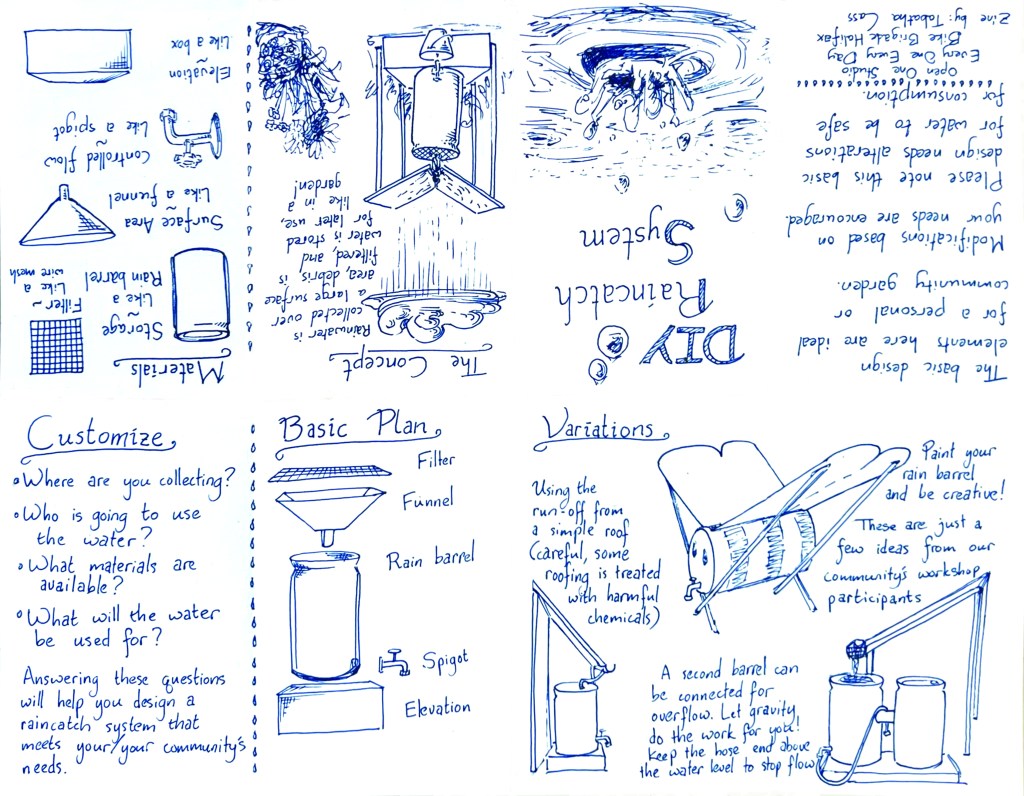 DIY
Raincatch
System
The Concept
Rainwater is
collected over
a large surface
area, debris is
filtered, and
water is stored
for later use,
like in a
garden!
Materials
Storage
~
Like a
Rain barrel
Filter
~
Like a
wire mesh
Surface Area
~
Like a funnel
Controlled flow
~
Like a spigot
Elevation
~
Like a box
Customize
• Where are you collecting?
• Who is going to use
the water?
• What materials are
available?
• What will the water
be used for?
Answering these questions
will help you design a
raincatch system that
meets your/your community's
needs.
Basic Plan
Filter
Funnel
Rain barrel
Spigot
Elevation
Variations
Using the
run-off from
a simple roof
(careful, some
roofing is treated
with harmful
chemicals)
Paint your
rain barrel
and be creative!
These are just a
few ideas from our
community's workshop
participants
A second barrel can
be connected for
overflow. Let gravity
do the work for you!
Keep the hose end above
the water level to stop flow
The basic design
elements here are ideal
for a personal or
community garden.
Modifications based on
your needs are encouraged.
Please note this basic
design needs alterations
for water to be safe
for consumption.
Open One Studio
Every One Every Day
Bike Brigade Halifax
Zine by: Tabatha Cass